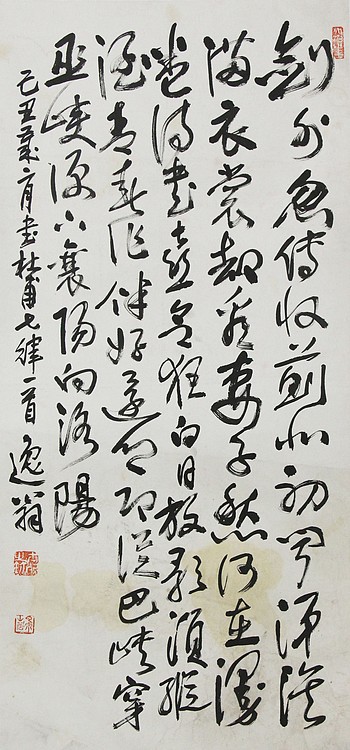 劍外忽傳收薊北初聞涕淚
滿衣裳卻看妻子愁何在漫
卷詩書喜欲狂白日放歌須縱
酒青春作伴好還鄉即從巴峽穿
巫峽便下襄陽向洛陽
己丑歲月書杜甫七律一首逸翁